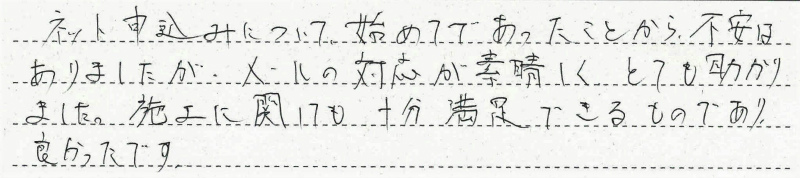 ネット申込みについて、始めてであったことから、不安は
ありましたが、メールの対応が素晴しく、とても助かり
ました。施工に関しても十分満足できるものであり、
良かったです。